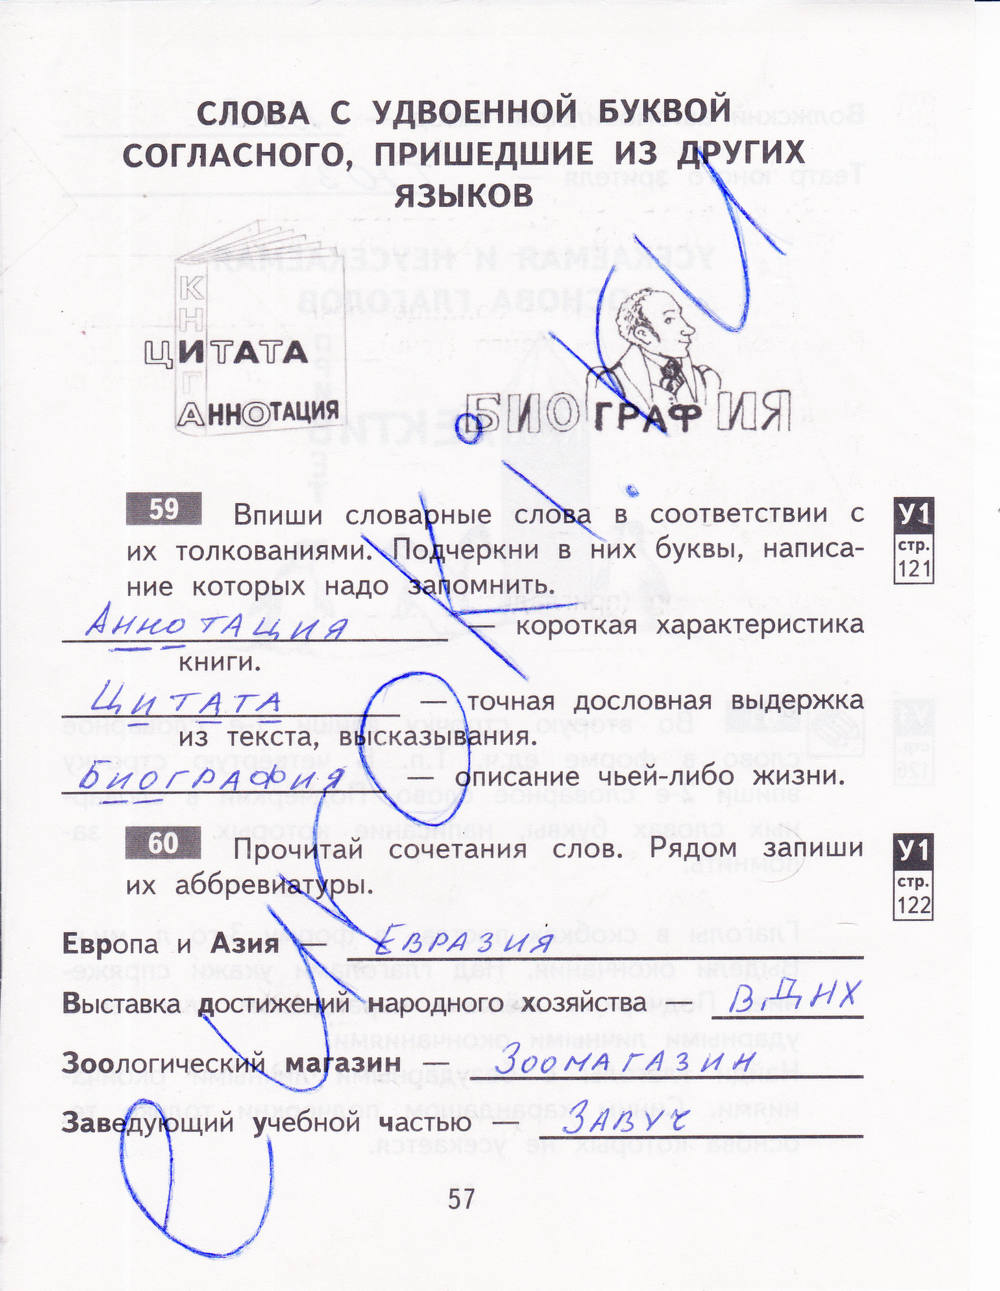 СЛОВА С УДВОЕННОЙ БУКВОЙ
СОГЛАСНОГО, ПРИШЕДШИЕ ИЗ ДРУГИХ
ЯЗЫКОВ
КНИГА
ЦИТАТА
АННОТАЦИЯ
БИОГРАФИЯ
59 Впиши словарные слова в соответствии с
их толкованиями. Подчеркни в них буквы, написа-
ние которых надо запомнить.
У1
стр.
121
Аннотация — короткая характеристика
книги.
Цитата — точная дословная выдержка
из текста, высказывания.
Биография — описание чьей-либо жизни.
60 Прочитай сочетания слов. Рядом запиши
их аббревиатуры.
У1
стр.
122
Европа и Азия — Евразия
Выставка достижений народного хозяйства — ВДНХ
Зоологический магазин — Зоомагазин
Заведующий учебной частью — Завуч
57